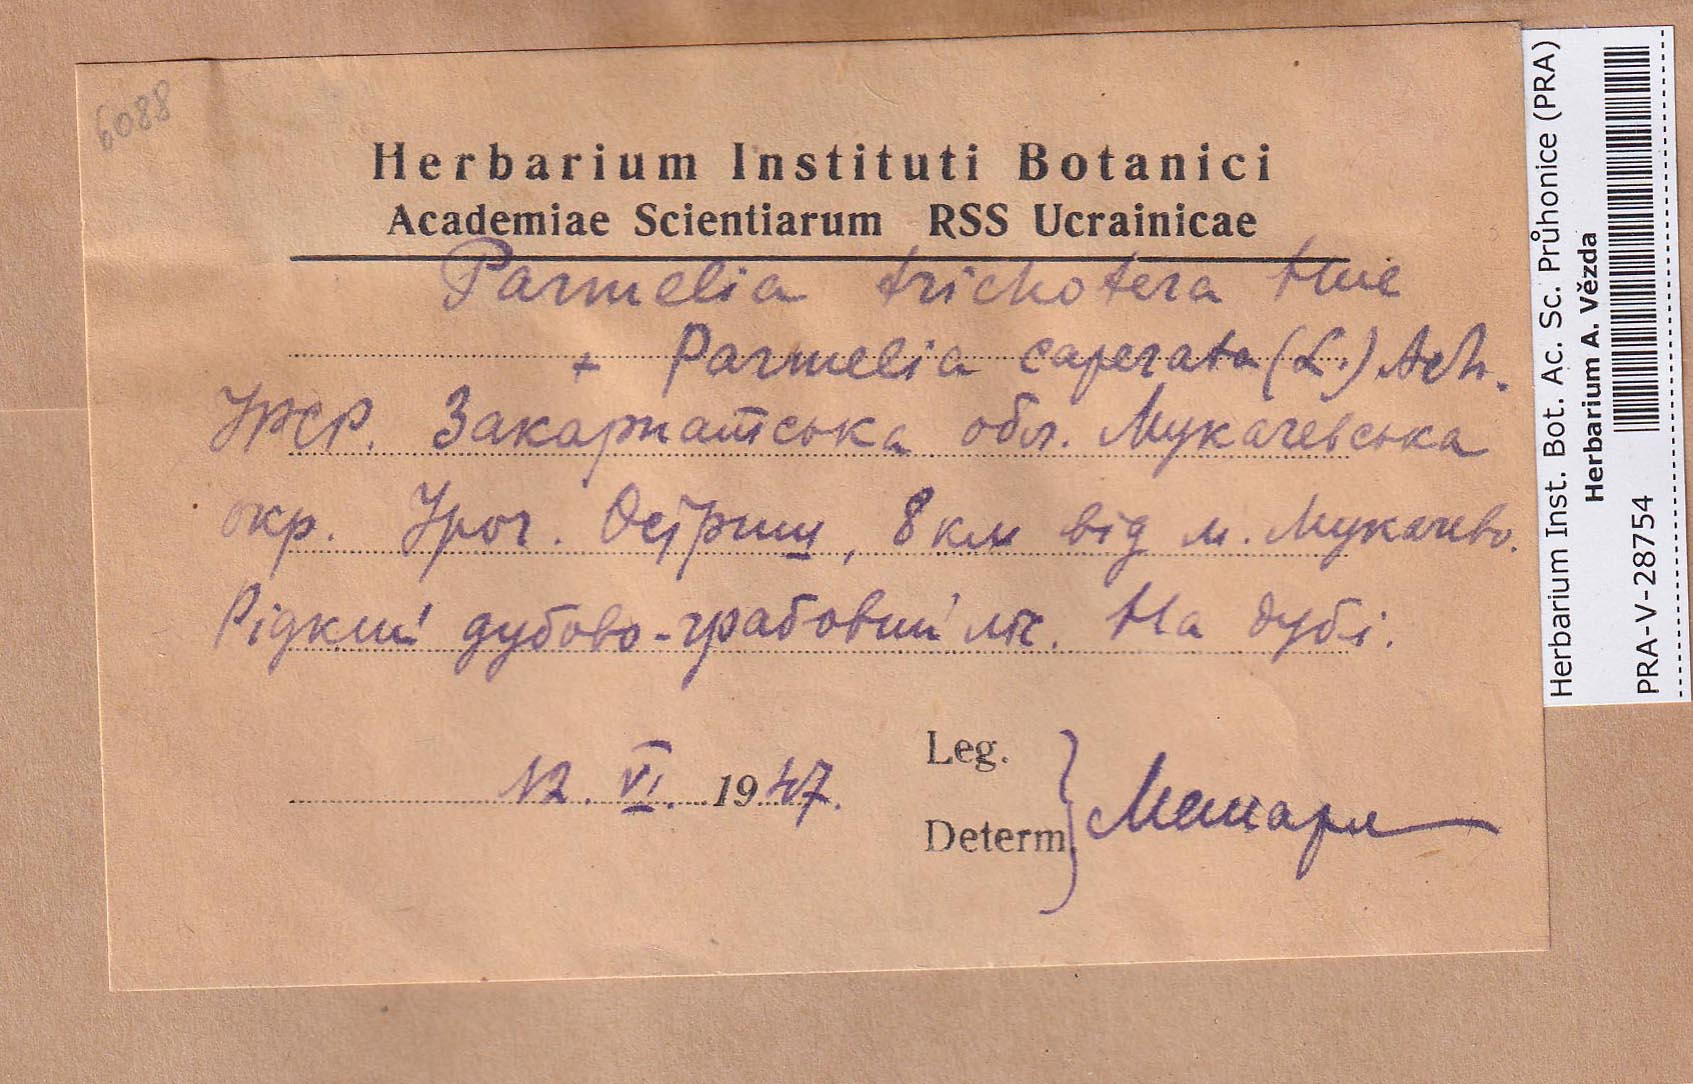 6088
Herbarium Instituti Botanici
Academiae Scientiarum RSS Ucrainicae
Parmelia trichotera Hue
+ Parmelia caperata (L.) Ach.
УРСР. Закарпатська обл. Мукачевська
окр. Уроч. , 8 км від м. Мукачево.
Рідкий дубово-грабовий ліс. На дубі.
12. VI. 1947.
Leg.
Determ.
Herbarium Inst. Bot. Ac. Sc. Průhonice (PRA)
Herbarium A. Vězda
PRA-V-28754